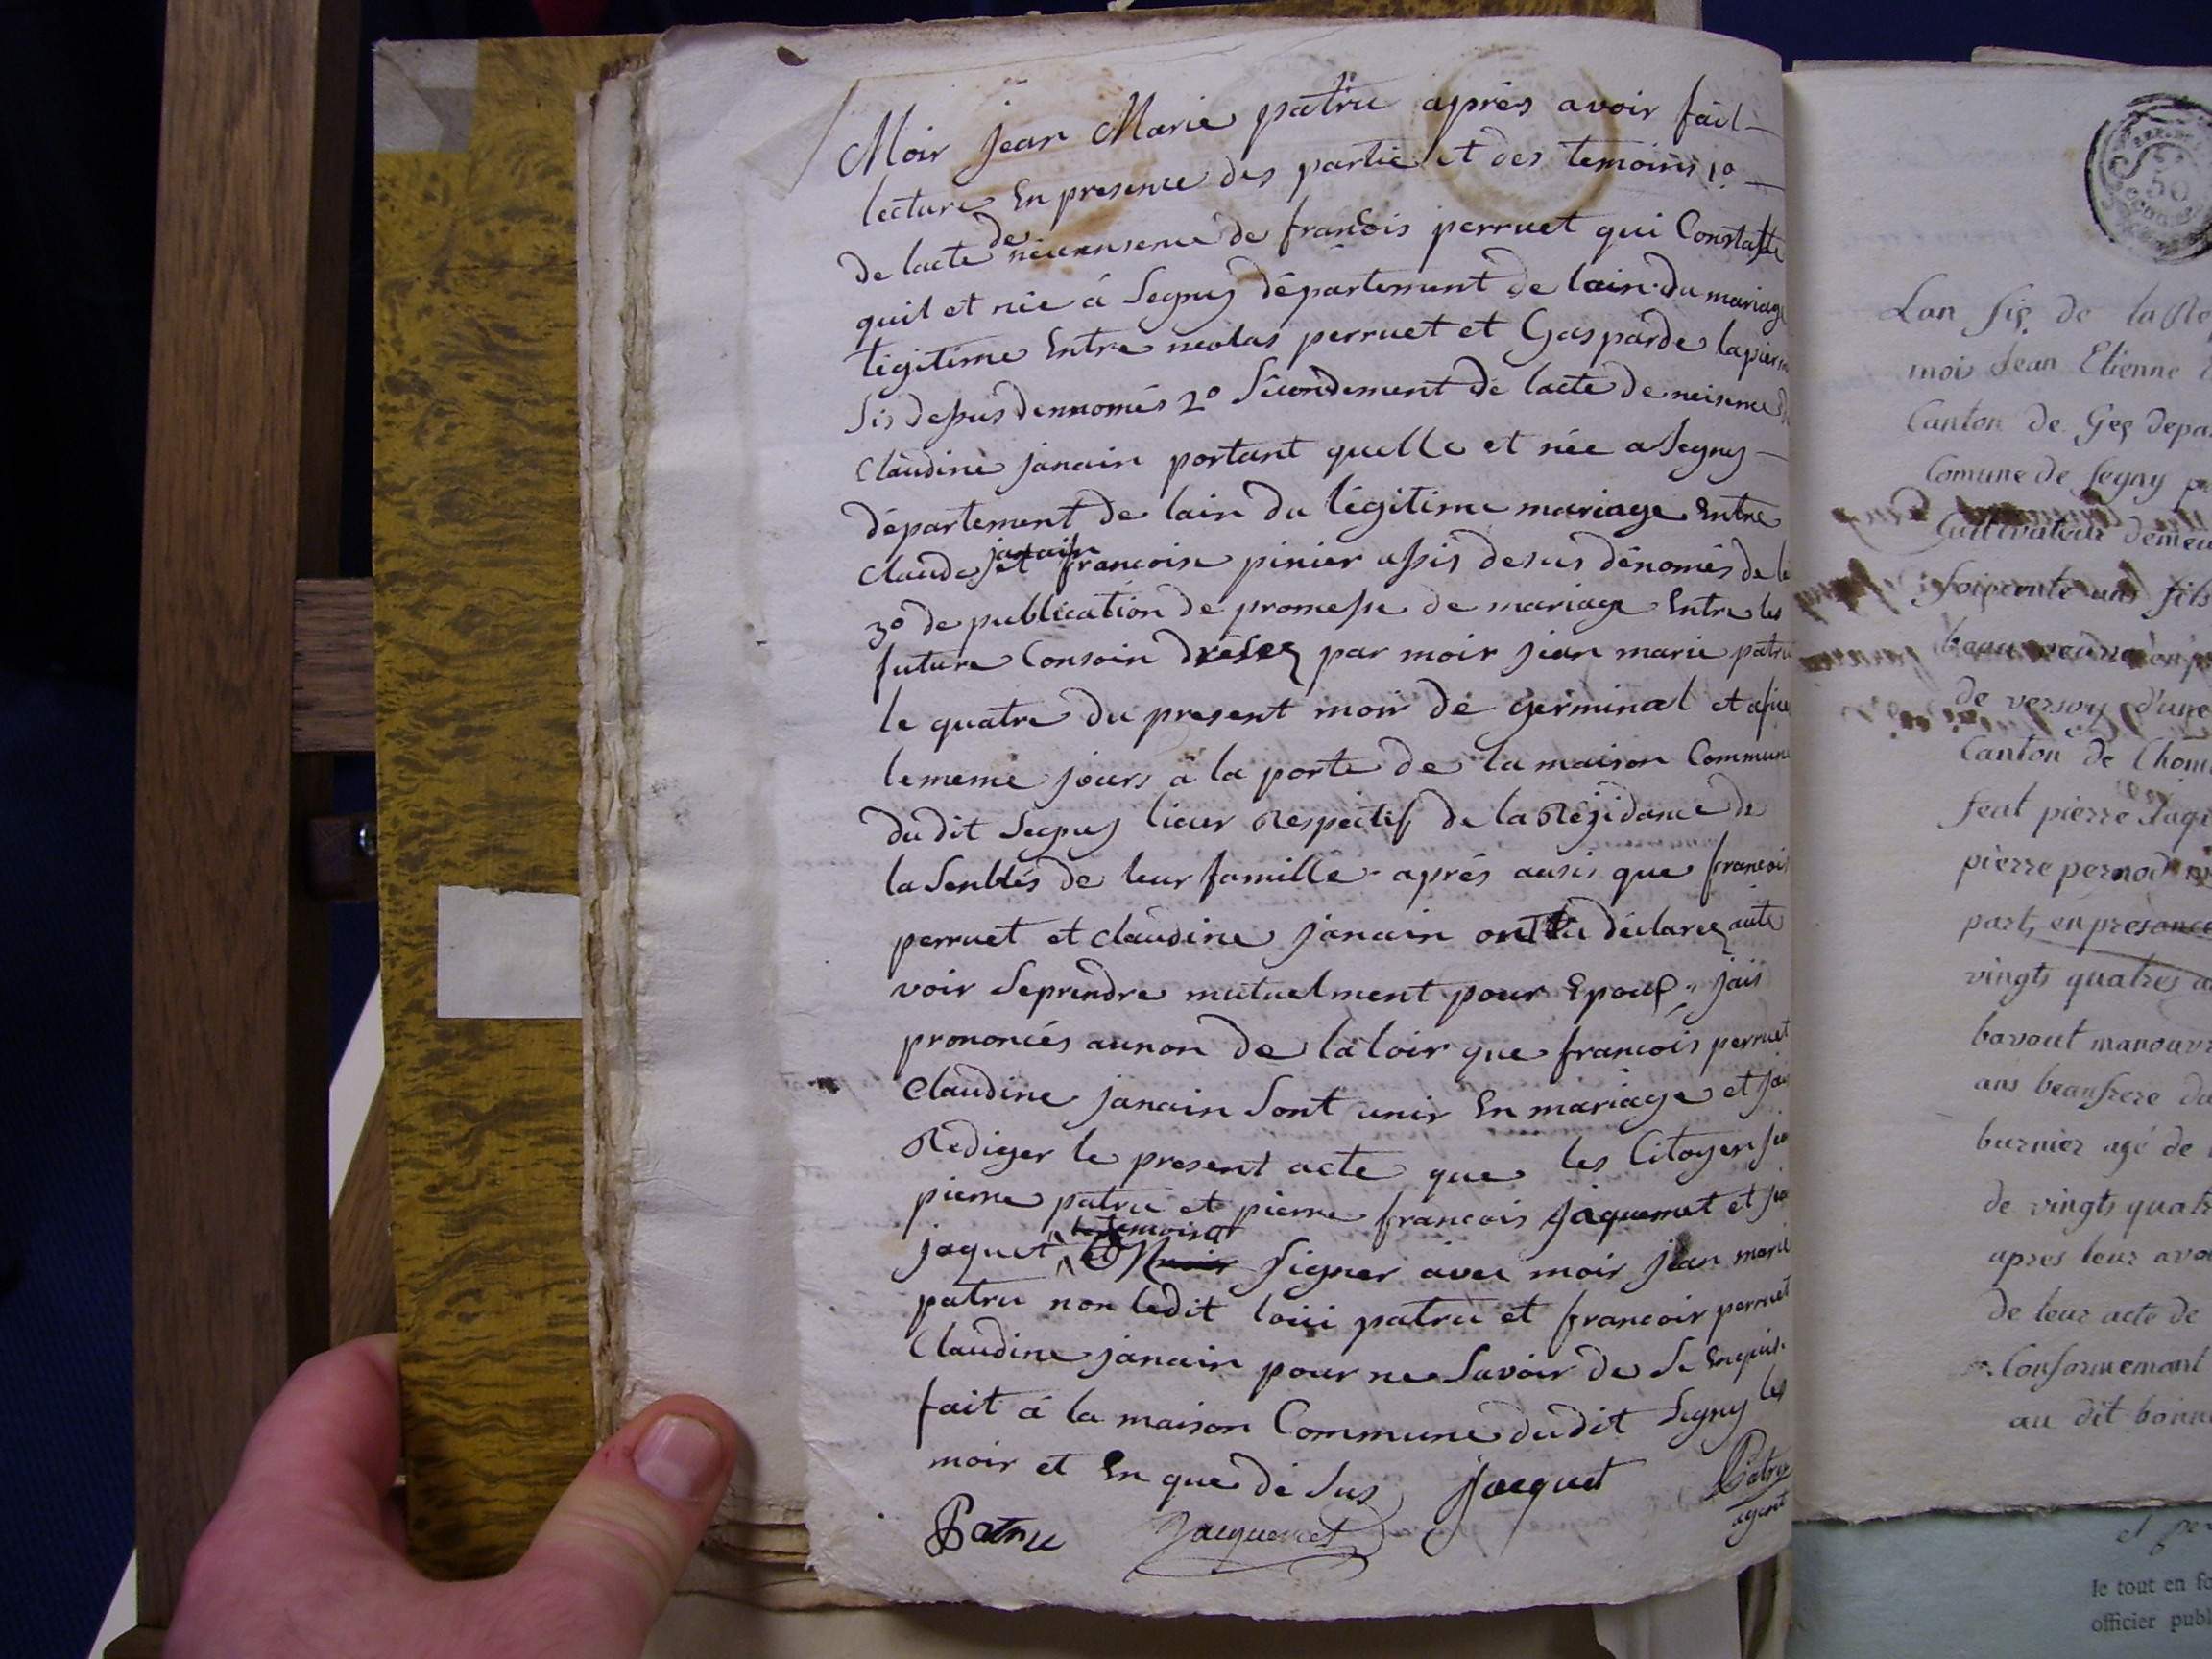 Moir jean Marie patru après avoir fait
lecture En presence des partie et des temoins 1o
de lacte de neicensence de francois perruet qui Constatte
quil et née à Segny département de lain du mariage
legitime Entre nicolas perruet et Gasparde
sis desus dennomés 2o Secondement de lacte de neisence de
Claudine janain portant quelle et née a Segny
département de lain du légitime mariage Entre
Claude janain et francoise pinier assis desus dénomés
3o de publication de promesse de mariage Entre les
future Consoin dresez par moir jean marie patru
le quatre du present moir de Germinal et
le meme jours à la porte de la maison Commune
du dit Segny lieur Respectif de la Résidance de
la Senblés de leur famille aprés ausis que francois
perruet et claudine janain ont déclarez aute
voir Seprendre mutuelment pour Epoux jais
prononcés aunon de la loir que francois perruet
Claudine janain Sont unir En mariage et jais
Rediger le present acte que les Citoyen
pierre patru et pierre francois jaquemet et
jaquet temoins signer avec moir jean marie
patru non ledit loui patru et francoir perruet
Claudine janain pour ne Savoir de Se Enquis
fait à la maison Commune dudit Segny les
moir et En que de Sus Jacquet Patru
Patru Jacquemet agent
50
Lan six de la Re
moi Jean Etienne
Canton de Gex depa
Comune de Segny
Cultivateur demeu
soixante ans fils
de versoy d'une
Canton de
feal pierre
pierre pernod
part, en présance
vingts quatres
bavout manouvr
ans beaufrere du
burnier agé de
de vingts quatr
apres leur avo
de leur acte de
Conformemant
au dit bonne
le tout en fo
officier publ